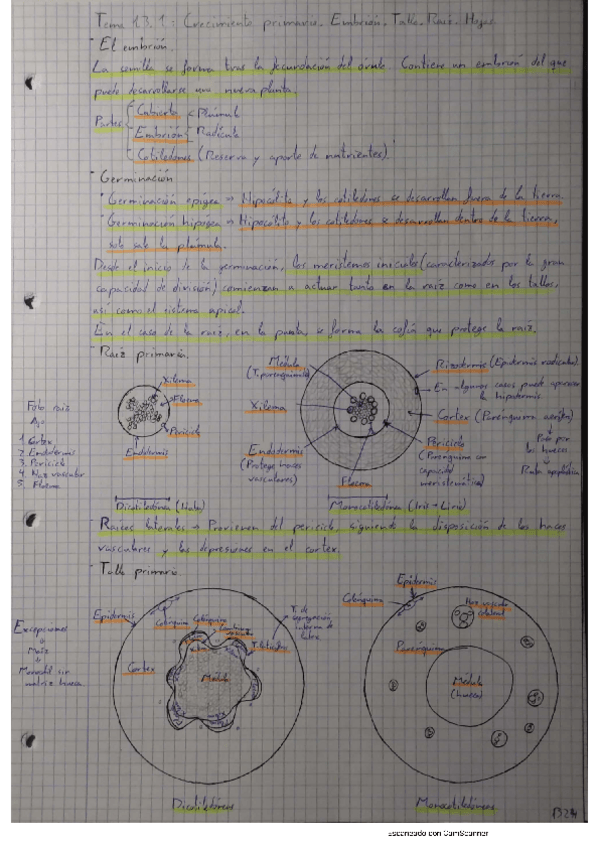 Tema 13.1: Crecimiento primario. Embrión. Tallo. Raíz. Hojas.
El embrión.
La semilla se forma tras la fecundación del óvulo. Contiene un embrión del que
puede desarrollarse una nueva planta.
Partes
Cubierta
Plúmula
Embrión
Radícula
Cotiledones (Reserva y aporte de nutrientes).
Germinación
Germinación epigea → Hipocótilo y los cotiledones se desarrollan fuera de la tierra.
Germinación hipogea → Hipocótilo y los cotiledones se desarrollan dentro de la tierra,
solo sale la plúmula.
Desde el inicio de la germinación, los meristemos iniciales (caracterizados por la gran
capacidad de división) comienzan a actuar tanto en la raíz como en los tallos,
así como el sistema apical.
En el caso de la raíz, en la punta, se forma la cofia que protege la raíz.
Raíz primaria.
Xilema
Floema
Periciclo
Endodermis
Dicotiledónea (Nabo)
Foto raíz
Ajo
1. Cortex
2. Endodermis
3. Periciclo
4. Haz vascular
5. Floema
Médula
(T. parenquimático)
Xilema
Endodermis
(Protege haces
vasculares)
Floema
Rizodermis (Epidermis radicular)
En algunos casos puede aparecer
la hipodermis
Cortex (Parénquima aerífero)
Periciclo
(Parénquima con
capacidad
meristemática)
Pasa por
los huecos
Ruta apoplástica
Monocotiledónea (Iris → Lirio)
Raíces laterales → Provienen del periciclo, siguiendo la disposición de los haces
vasculares y las depresiones en el cortex.
Tallo primario.
Epidermis
Colénquima
Cortex
Médula
T. de
Excepciones
Maíz
Monocotil sin
médula hueca
Dicotiledóneas
Epidermis
Colénquima
Haz vascular
colateral
Parénquima
Médula
(hueca)
Monocotiledóneas
Escaneado con CamScanner